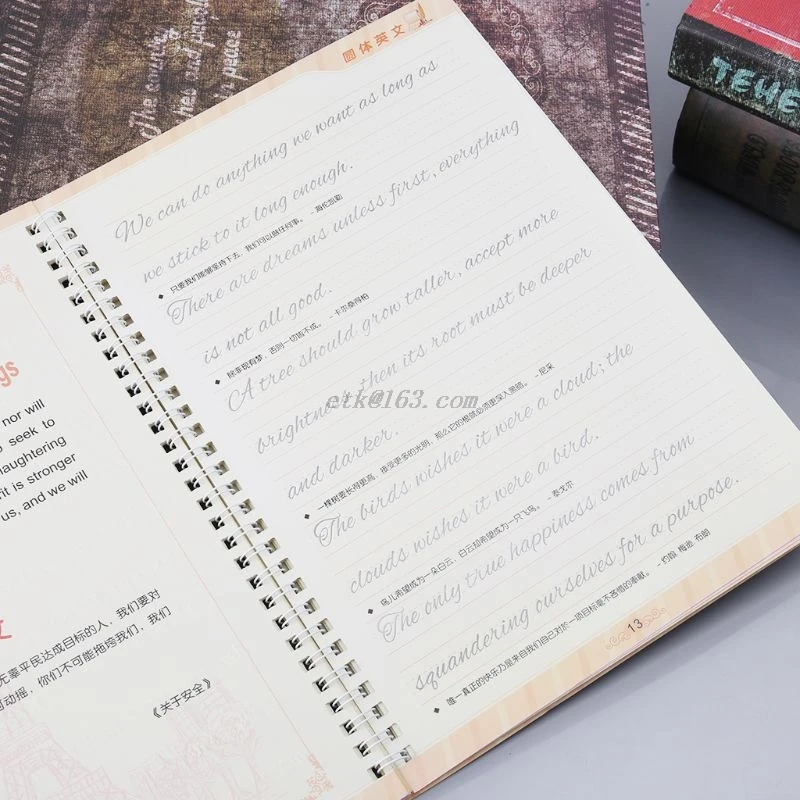 圆体英文
We can do anything we want as long as
we stick to it long enough.
只要我们能够坚持下去，我们可以做任何事。 -海伦凯勒
There are dreams unless first, everything
is not all good.
除非现有梦，否则一切皆不成。 -卡尔桑得柏
A tree should grow taller, accept more
brightness, then its root must be deeper
and darker.
一棵树要长得更高，接受更多的光明，那么它的根就必须更深入黑暗。 -尼采
The birds wishes it were a cloud; the
clouds wishes it were a bird.
鸟儿希望成为一朵白云，白云却希望成为一只飞鸟。 -泰戈尔
The only true happiness comes from
squandering ourselves for a purpose.
唯一真正的快乐乃是来自我们自己对於一项目标毫不吝惜的奉献。 -约翰 梅逊 布朗
13
etk@163.com
gs
nor will
seek to
laughtering
it is stronger
us, and we will
文
无辜平民达成目标的人，我们要对
动摇，你们不可能拖垮我们，我们
《关于安全》
The country
peace
TEWE